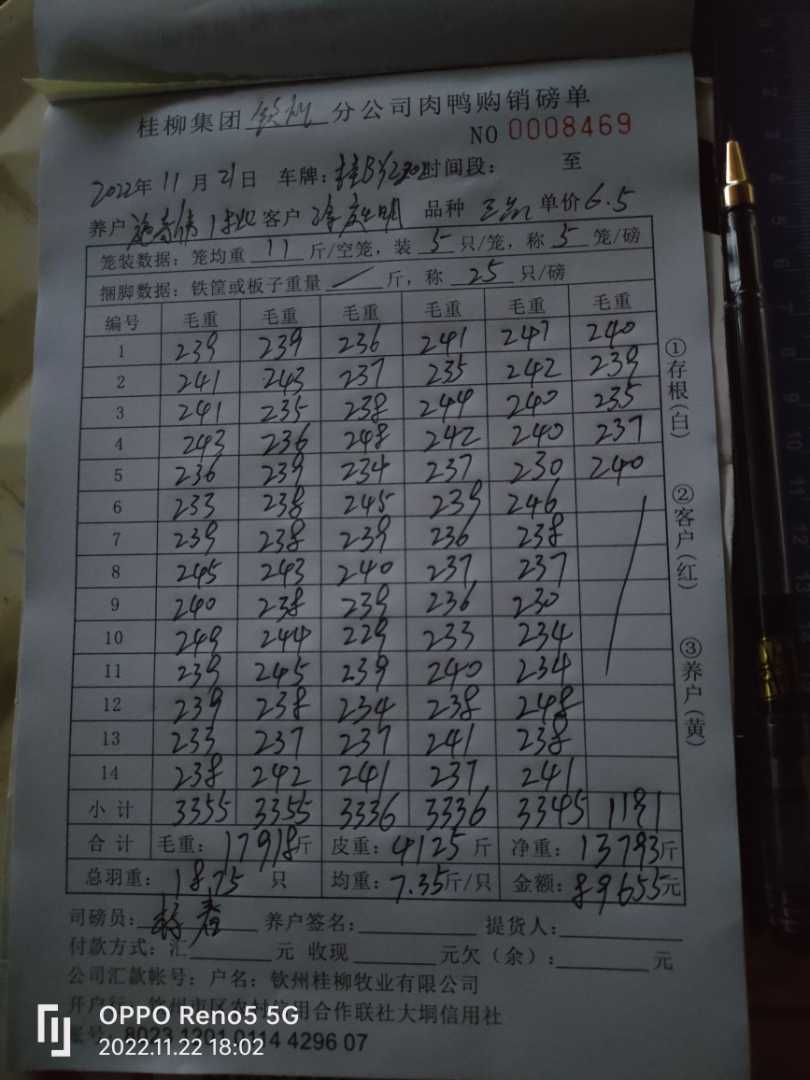 桂柳集团 钦州 分公司肉鸭购销磅单
NO 0008469
2022年 11月 21日 车牌: 时间段: 至
养户 客户 品种 单价 6.5
笼装数据: 笼均重 11 斤/空笼, 装 5 只/笼, 称 5 笼/磅
捆脚数据: 铁筐或板子重量 / 斤, 称 25 只/磅
编号 毛重 毛重 毛重 毛重 毛重 毛重
1 239 239 236 241 247 240
2 241 243 237 235 242 239
3 241 235 238 244 240 235
4 243 236 248 242 240 237
5 236 239 234 237 230 240
6 233 238 245 239 246
7 239 238 239 236 238
8 245 243 240 237 237
9 240 238 239 236 230
10 249 244 229 233 234
11 239 245 239 240 234
12 239 238 234 238 248
13 233 237 237 241 238
14 238 242 241 237 241
小计 3355 3355 3336 3336 3345 1191
合计 毛重: 17918斤 皮重: 4125斤 净重: 13793斤
总羽重: 1875 只 均重: 7.35斤/只 金额: 89655元
司磅员: 养户签名: 提货人:
付款方式: 汇 元 收现 元欠(余): 元
公司汇款帐号: 户名: 钦州桂柳牧业有限公司
开户行: 钦州市区农村信用合作联社大垌信用社
账号: 8023 1201 0114 4296 07
①存根(白)
②客户(红)
③养户(黄)
OPPO Reno5 5G
2022.11.22 18:02